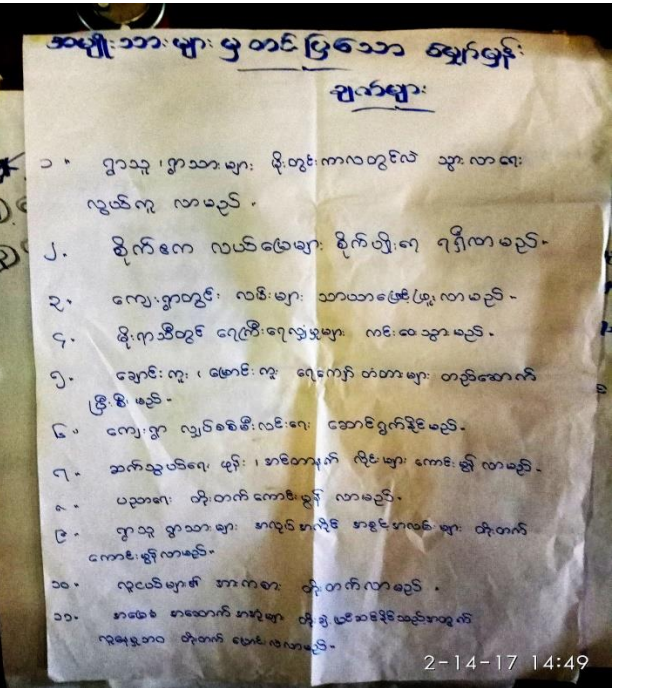 အမျိုးသားများ မှ တင်ပြသော မျှော်မှန်း
ချက်များ
၁။ ရွာသူ ၊ ရွာသားများ မိုးတွင်းကာလတွင်လဲ သွားလာရေး
လွယ်ကူ လာမည်။
၂။ စိုက်ဧက လယ်မြေများ စိုက်ပျိုးရေ ရရှိလာမည်။
၃။ ကျေးရွာတွင်း လမ်းများ သာယာဖြောင့်ဖြူးလာမည်။
၄။ မိုးရာသီတွင် ရေကြီးရေလျှံမှုများ ကင်းဝေးသွားမည်။
၅။ ချောင်းကူး ၊ မြောင်းကူး ရေကျော် တံတားများ တည်ဆောက်
ပြီးစီးမည်။
၆။ ကျေးရွာ လျှပ်စစ်မီးလင်းရေး ဆောင်ရွက်နိုင်မည်။
၇။ ဆက်သွယ်ရေး ဖုန်း ၊ အင်တာနက် လိုင်းများ ကောင်းမွန် လာမည်။
၈။ ပညာရေး တိုးတက်ကောင်းမွန် လာမည်။
၉။ ရွာသူ ရွာသားများ အလုပ်အကိုင် အခွင့်အလမ်းများ တိုးတက်
ကောင်းမွန်လာမည်။
၁၀။ လူငယ်များ၏ အားကစား တိုးတက်လာမည်။
၁၁။ အခြေခံ အဆောက်အအုံများ တိုးချဲ့ ပြင်ဆင်နိုင်သည့်အတွက်
လူနေမှုဘဝ တိုးတက် ပြောင်းလဲလာမည်။
2-14-17 14:49